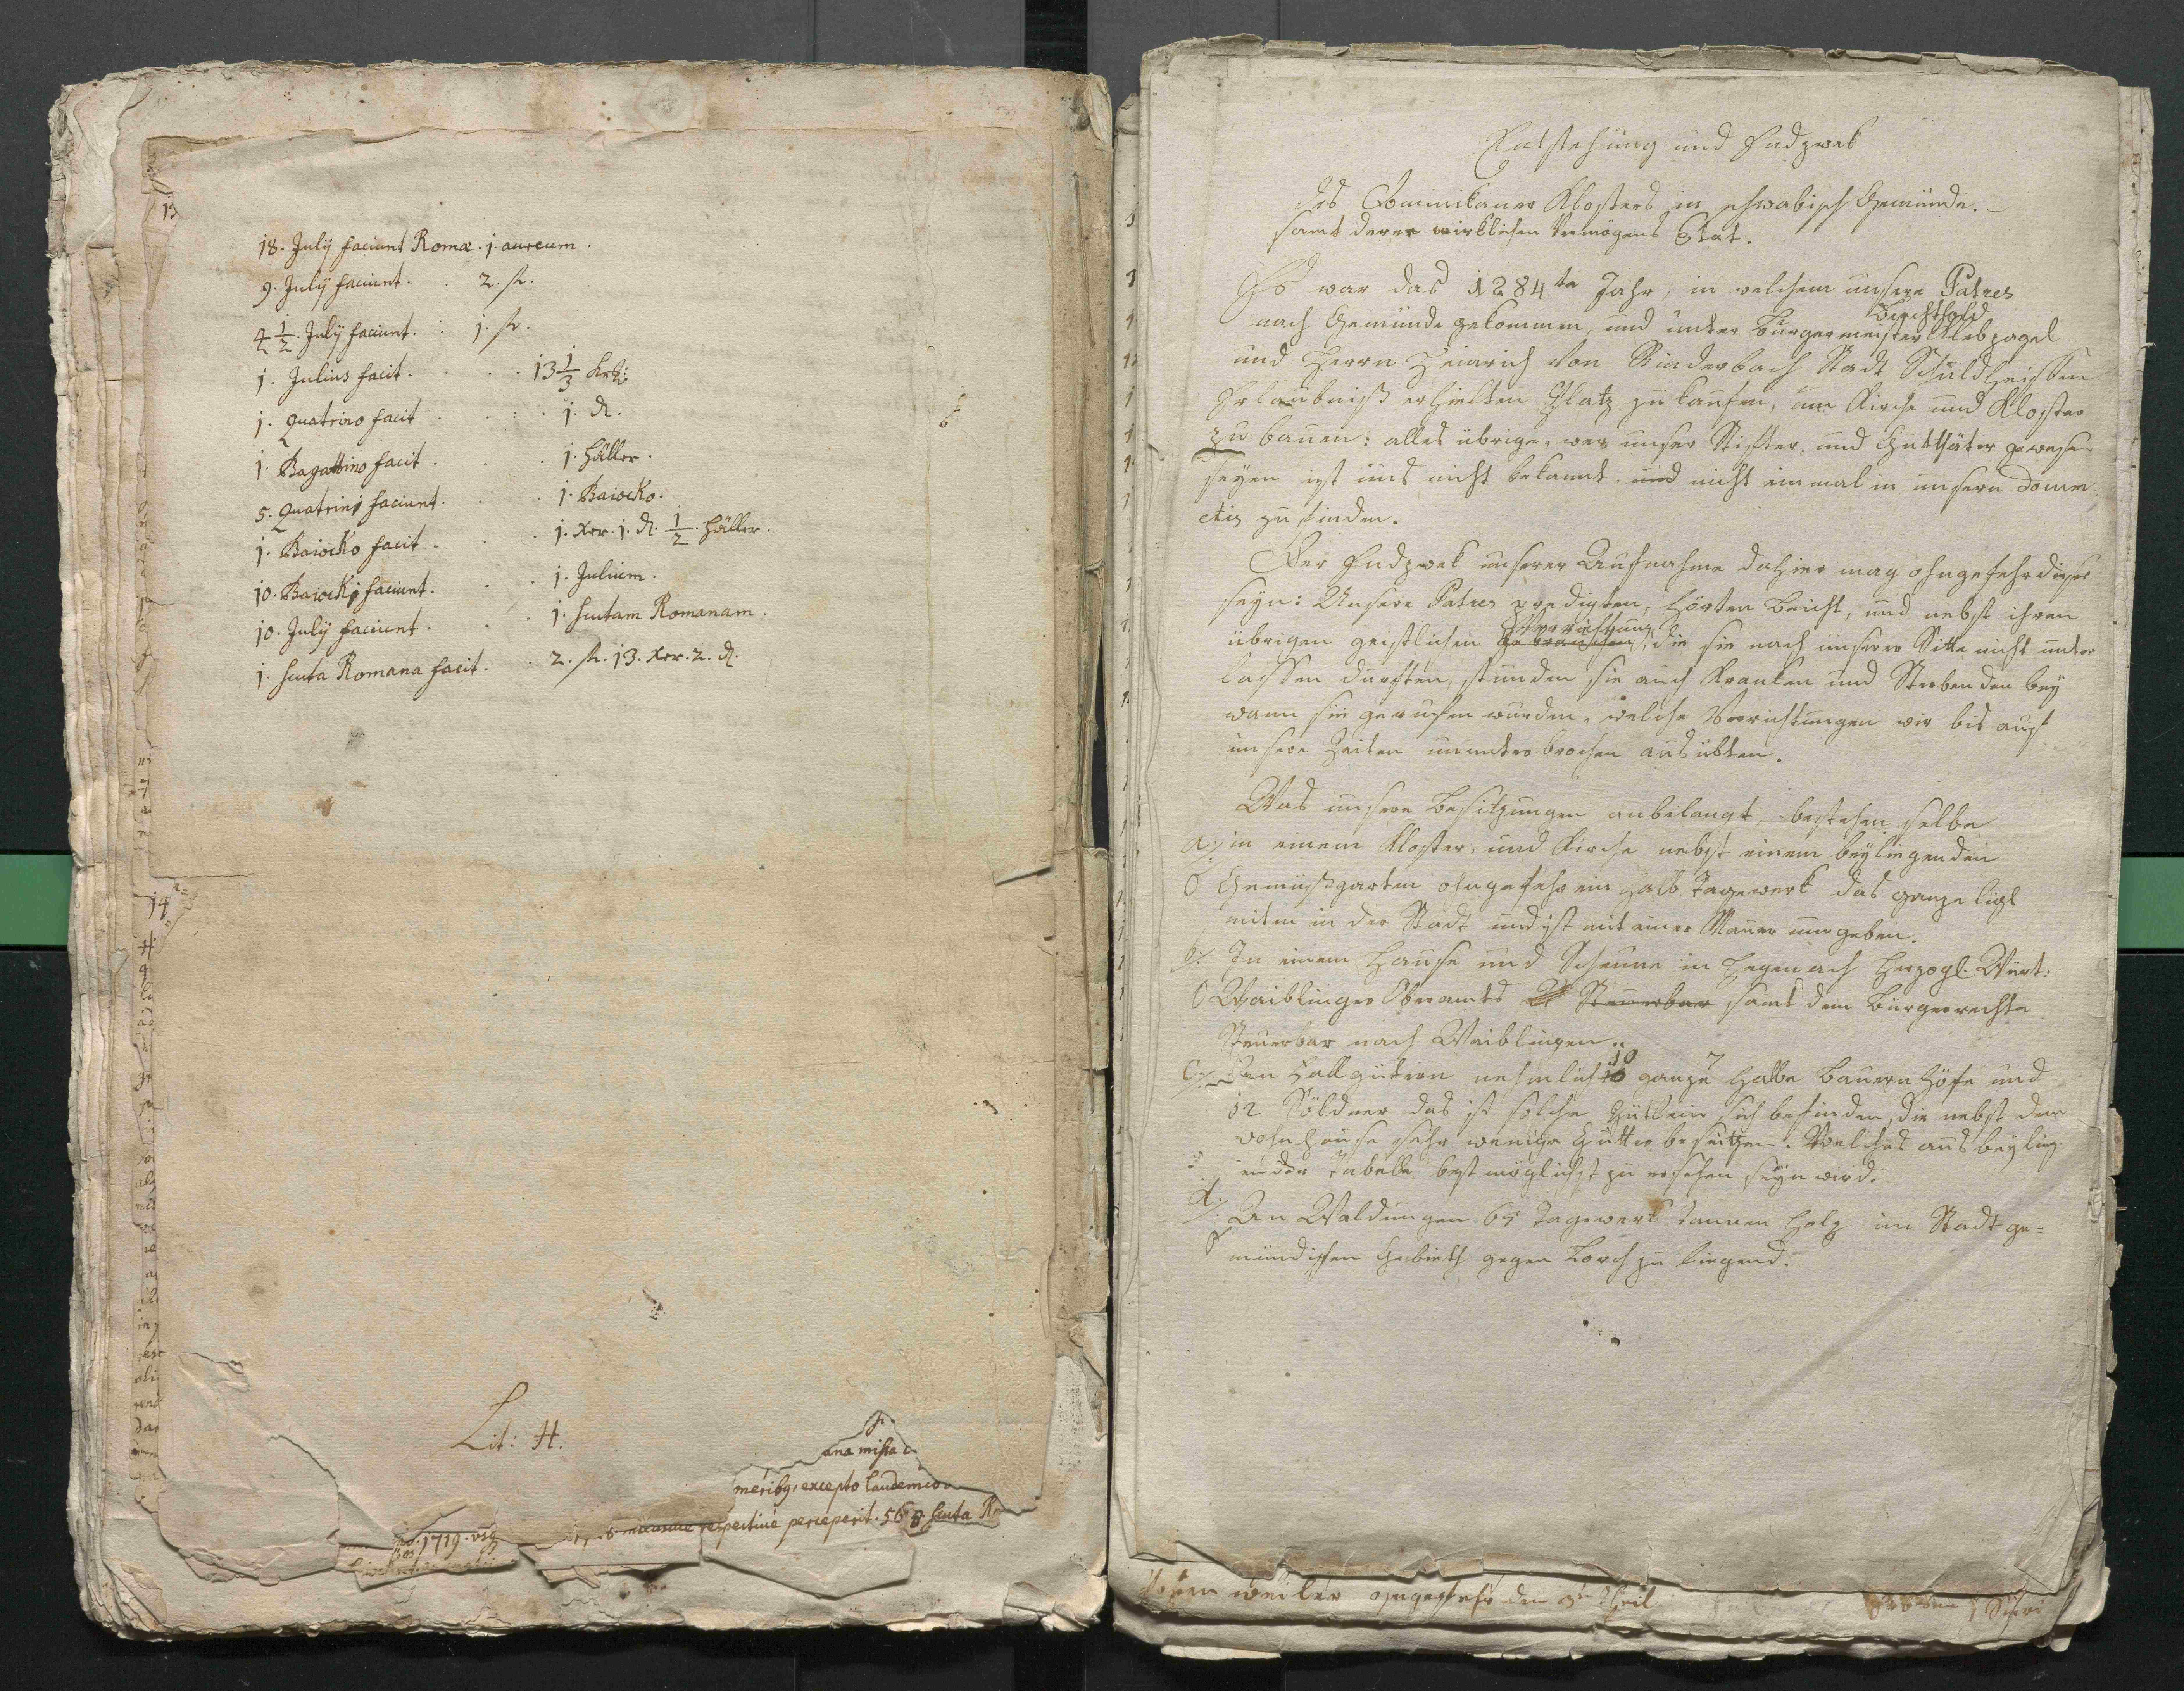 18. Julÿ faciunt Romæ. j. aureum.
9. Julÿ faciunt. . 2. fl.
4 1/2. Julÿ faciunt. : j. fl.
j. Julius facit. . . . 13 1/3 krz:
j. Quatrino facit . . : . j. ₰.
j. Bagattino facit . . . j. Häller.
5. Quatrinj faciunt. . . j. Baiocko.
j. Baiocko facit . . . j. Xer. j. ₰. 1/2. Häller.
10. Baiockj faciunt. . . j. Julium.
10. Julÿ faciunt . . . j. scutam Romanam.
j. scuta Romana facit. . 2. fl. 13. Xer. 2. ₰.
Lit: H.
ana missa
merib9, excepto laudemio
respective perceperit. 56 scuta
1719.
13
14
Entstehung und Endzwek
des Dominikaner Klosters in schwäbisch Gemünde.
samt derer wirklichen Vermögens Stat.
Es war das 1284te Jahr, in welchem unsere Patres
nach Gemünde gekommen, und unter Burgermeister Berchthold Klebzagel
und Herrn Heinrich von Rinderbach Stadt Schuldheissen
Erlaubniß erhielten Platz zu kaufen, um Kirche und Kloster
zu bauen: alles übrige, wer unser Stifter, und Gutthäter gewesen
seyen ist uns nicht bekannt. und nicht einmal in unsern Docum
ctis zu finden.
Der Endzwek unserer Aufnahme dahier mag ohngefehr dieser
seyn: Unsere Patres predigten, hörten Beicht, und nebst ihren
übrigen geistlichen Verrichtung, die sie nach unserer Sitte nicht unter
lassen durften, stunden sie auch Kranken und Sterbenden bey
wann sie gerufen wurden, welche Verrichtungen wir bis auf
unsere Zeiten ununterbrochen ausübten.
Was unsere Besitzungen anbelangt, bestehen selbe
a) in einem Kloster, und Kirche nebst einem beyliegenden
Gemüßgarten ohngefehr ein halb Tagewerk das ganze ligt
miten in der Stadt und ist mit einer Mauer umgeben.
b) In einem Hause und Scheune in Hegenach Herzogl. Würt:
Waiblinger Oberamts Steuerbar samt dem Bürgerrechte
Steuerbar nach Waiblingen.
c) An Fallgütern nehmlich 10 ganze 7 halbe Bauern Höfe und
12 Söldner das ist solche Gütlein sich befinden, die nebst der
wohnhause sehr wenige Gütter besitzen. Welches aus beylig
ender Tabelle bestmöglichst zu ersehen seyn wird.
d. An Waldungen 65 Tagwerk tannen Holz im Stadt ge=
mündischen Gebieth gegen Lorch zu liegend.
weiler ohngefehr den 3n Theil